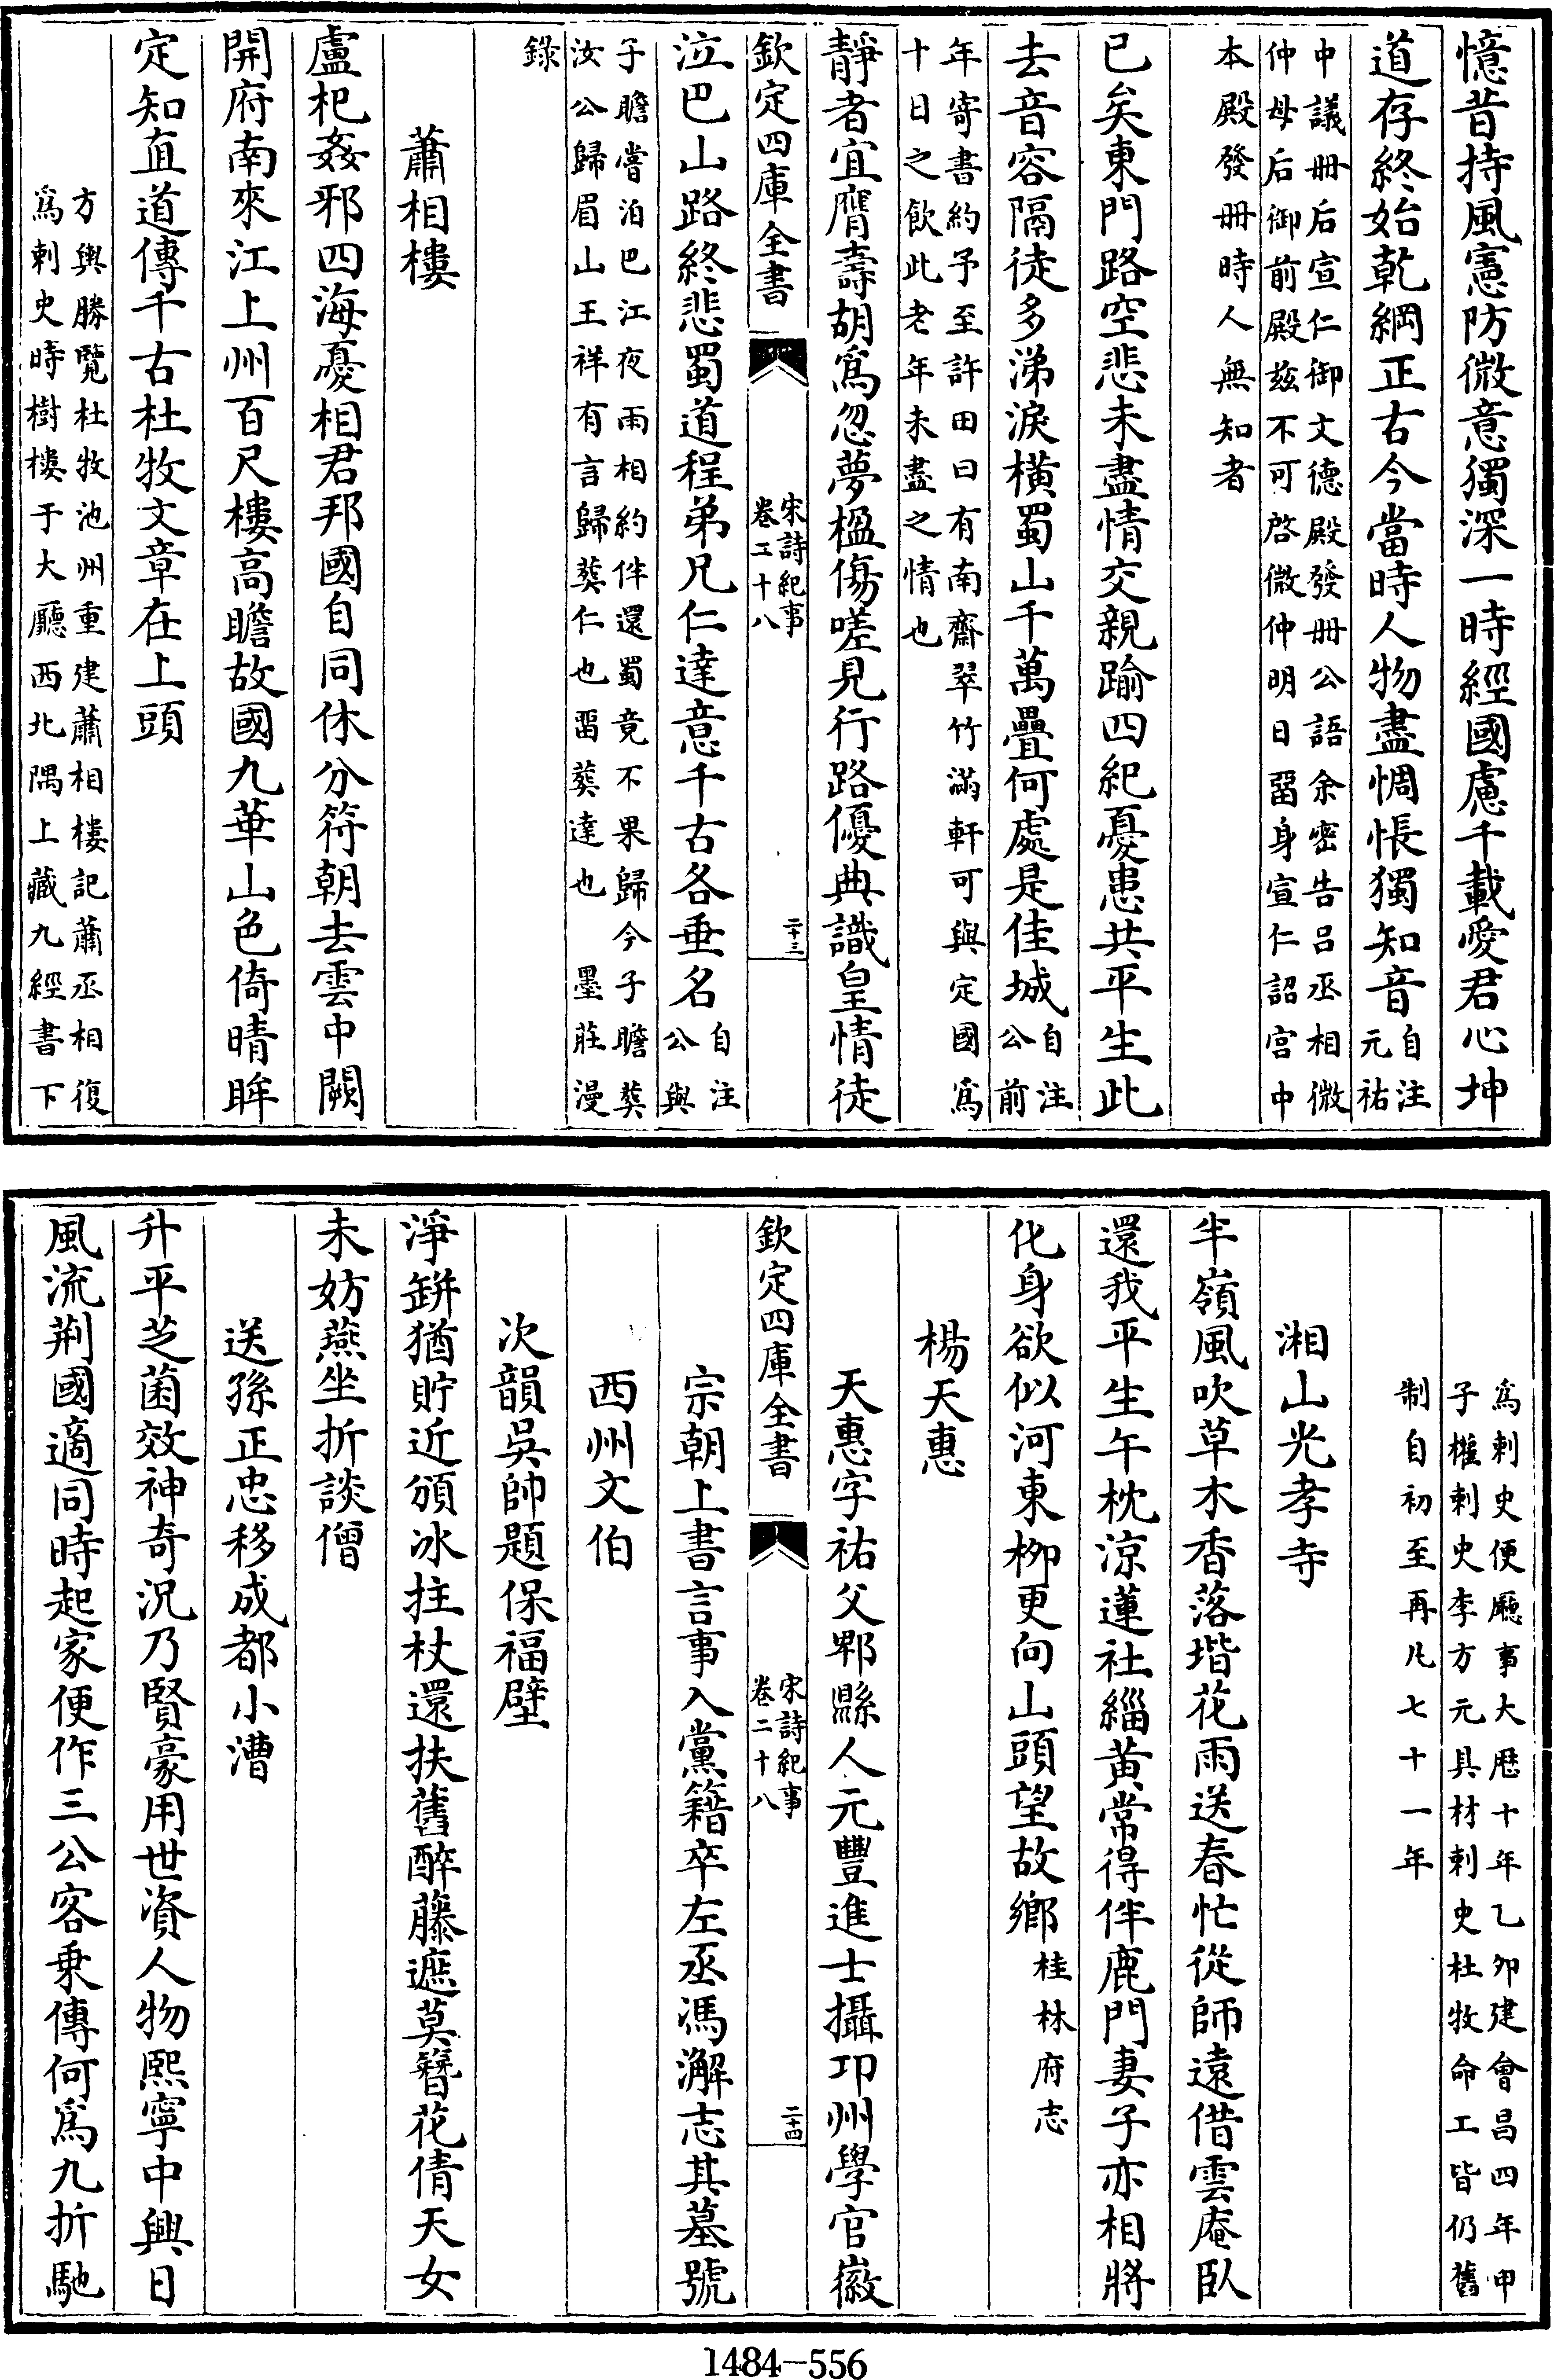 憶昔持風憲防微意獨深一時經國慮千載愛君心坤
道存終始乾綱正古今當時人物盡惆悵獨知音自注元祐
中議冊后宣仁御文德殿發冊公語余密告呂丞相微
仲母后御前殿兹不可啓微仲明日畱身宣仁詔宫中
本殿發冊時人無知者
已矣東門路空悲未盡情交親踰四紀憂患共平生此
去音容隔徒多涕淚横蜀山千萬疊何處是佳城自注公前
年寄書約予至許田曰有南齋翠竹滿軒可與定國爲
十日之飲此老年未盡之情也
靜者宜膺壽胡爲忽夢楹傷嗟見行路優典識皇情徒
欽定四庫全書
宋詩紀事
卷二十八
二十三
泣巴山路終悲蜀道程弟兄仁達意千古各垂名自注公與
子瞻嘗泊巴江夜雨相約伴還蜀竟不果歸今子瞻葬
汝公歸眉山王祥有言歸葬仁也畱葬達也 墨莊漫
錄
蕭相樓
盧杞姦邪四海憂相君邦國自同休分符朝去雲中闕
開府南來江上州百尺樓高瞻故國九華山色倚晴眸
定知直道傳千古杜牧文章在上頭
方輿勝覽杜牧池州重建蕭相樓記蕭丞相復
爲刺史時樹樓于大廳西北隅上藏九經書下
爲刺史便廳事大厯十年乙卯建會昌四年甲
子權刺史李方元具材刺史杜牧命工皆仍舊
制自初至再凡七十一年
湘山光孝寺
半嶺風吹草木香落堦花雨送春忙從師遠借雲庵臥
還我平生午枕涼蓮社緇黄常得伴鹿門妻子亦相將
化身欲似河東柳更向山頭望故鄉桂林府志
楊天惠
天惠字祐父郫縣人元豐進士攝邛州學官徽
欽定四庫全書
宋詩紀事
卷二十八
二十四
宗朝上書言事入黨籍卒左丞馮澥志其墓號
西州文伯
次韻吳帥題保福壁
淨缾猶貯近頒冰拄杖還扶舊醉藤遮莫簪花倩天女
未妨燕坐折談僧
送孫正忠移成都小漕
升平芝菌效神奇況乃賢豪用世資人物熙寧中興日
風流荆國適同時起家便作三公客乗傳何爲九折馳
1484-556